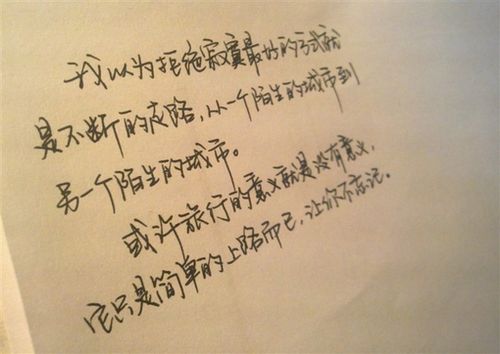 我以为拒绝寂寞最好的方式就
是不断的走路，从一个陌生的城市到
另一个陌生的城市。
或许旅行的意义就是没有意义，
它只是简单的上路而已，让你不忘记。